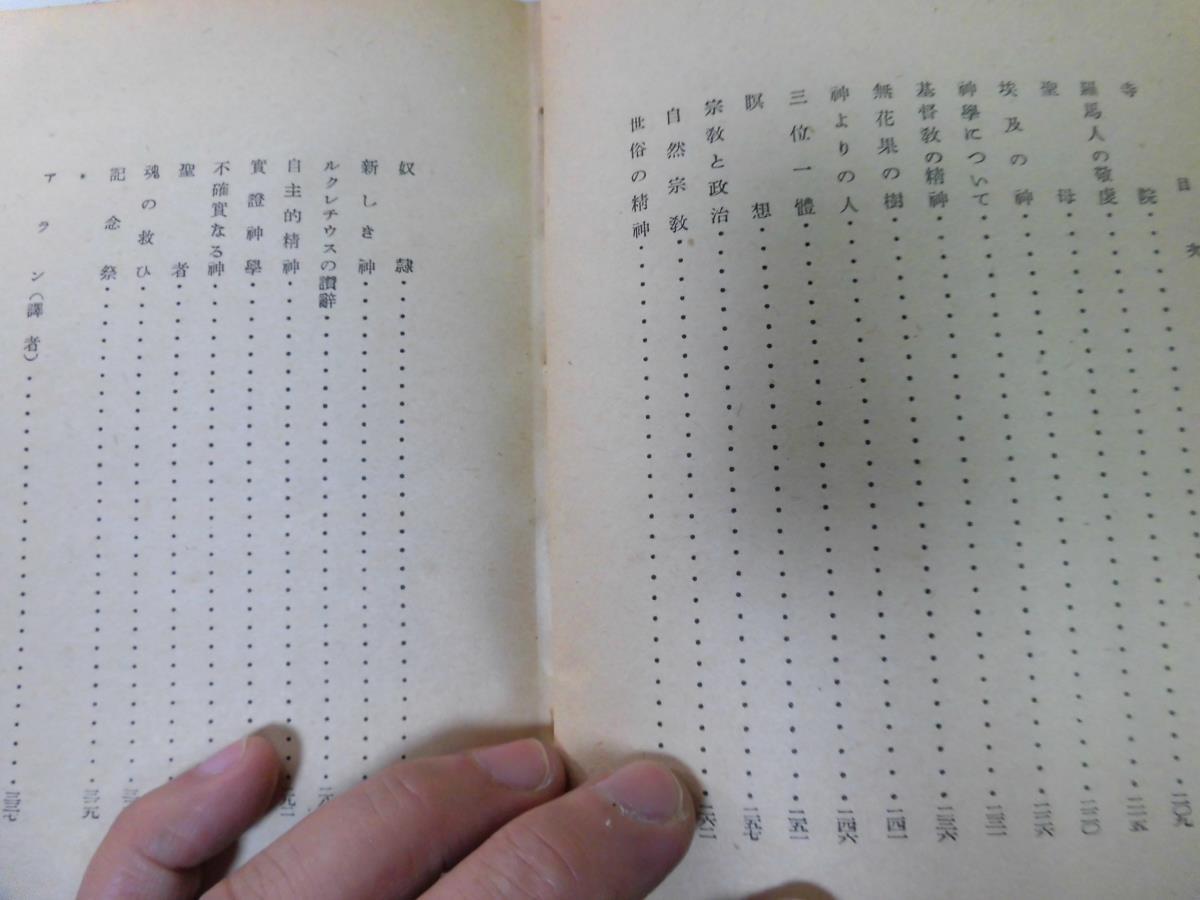 目次
寺院・・・二〇九
羅馬人の敬虔・・・二一五
聖母・・・二二〇
埃及の神・・・二二六
神學について・・・二三一
基督教の精神・・・二三六
無花果の樹・・・二四一
神よりの人・・・二四六
三位一體・・・二五一
瞑想・・・二五七
宗教と政治・・・二六二
自然宗教・・・
世俗の精神・・・
奴隷・・・
新しき神・・・
ルクレチウスの讚辭・・・
自主的精神・・・
實證神學・・・
不確實なる神・・・
聖者・・・
魂の救ひ・・・
記念祭・・・
アラン（譯者）・・・三三七